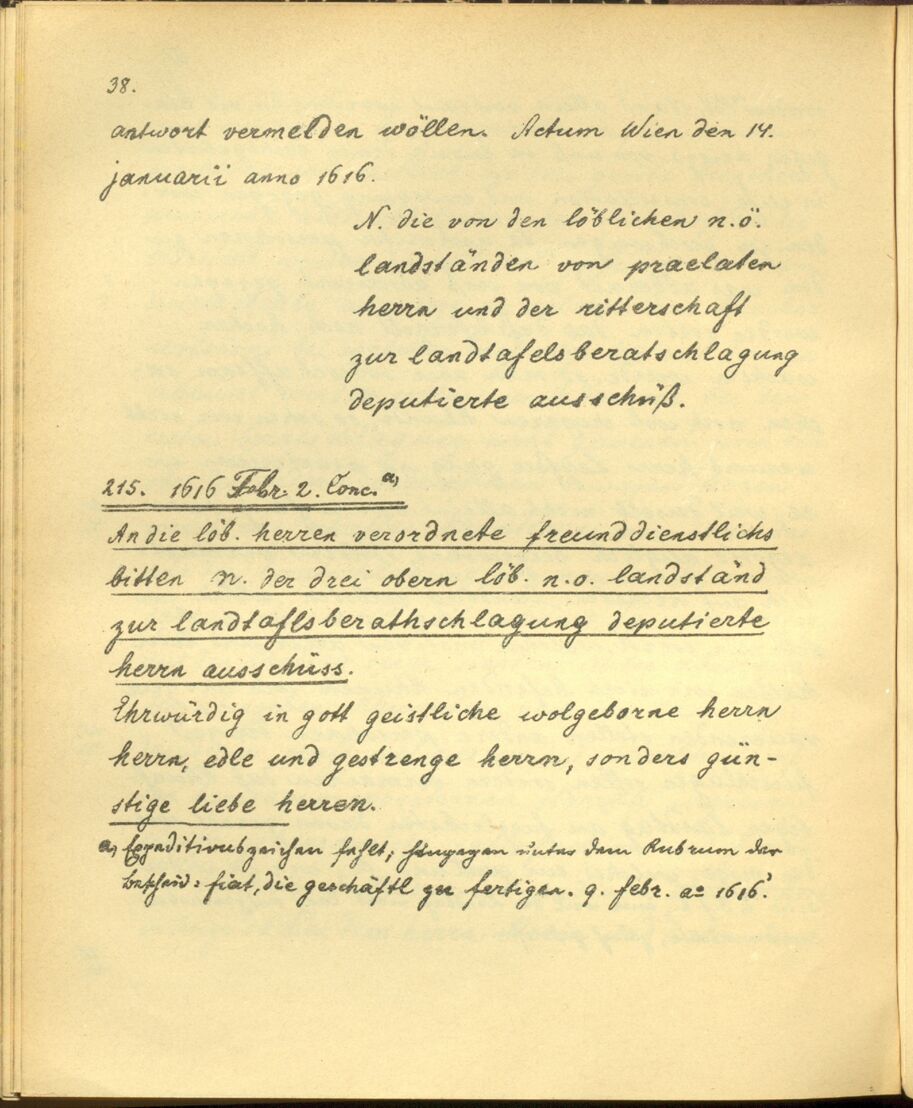 38.
antwort vermelden wöllen. Actum Wien den 14.
januarii anno 1616.
N. die von den löblichen n.ö.
landständen von praelaten
herrn und der ritterschaft
zur landtafelsberatschlagung
deputierte ausschüß.
215. 1616 Febr. 2. Conc. a)
An die löb. herren verordnete freunddienstlichs
bitten N. der drei obern löb. n.o. landständ
zur landtaflsberathschlagung deputierte
herrn ausschüss.
Ehrwürdig in gott geistliche wolgeborne herrn
herrn, edle und gestrenge herrn, sonders gün-
stige liebe herren.
a) Expeditionszeichen fehlt; hingegen unter dem Rubrum der
Bescheid: fiat, die geschäftl zu fertigen. 9. febr. ao 1616.